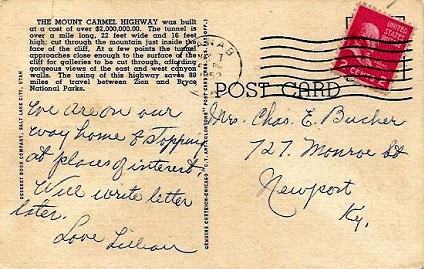 THE MOUNT CARMEL HIGHWAY was built
at a cost of over $2,000,000.00. The tunnel is
over a mile long, 22 feet wide and 16 feet
high; cut through the mountain just inside the
face of the cliff. At a few points the tunnel
approaches close enough to the surface of the
cliff for galleries to be cut through, affording
gorgeous views of the east and west canyon
walls. The using of this highway saves 88
miles of travel between Zion and Bryce
National Parks.
We are on our
way home & stopping
at places of interest.
Will write letter
later.
Love Lillian
DESERET BOOK COMPANY, SALT LAKE CITY, UTAH
GENUINE CURTEICH-CHICAGO "C.T. ART-COLORTONE" POST CARD
POST CARD
UNITED STATES
POSTAGE
2 CENTS 2
Mrs. Chas. E. Bucher
727 Monroe St
Newport
Ky.